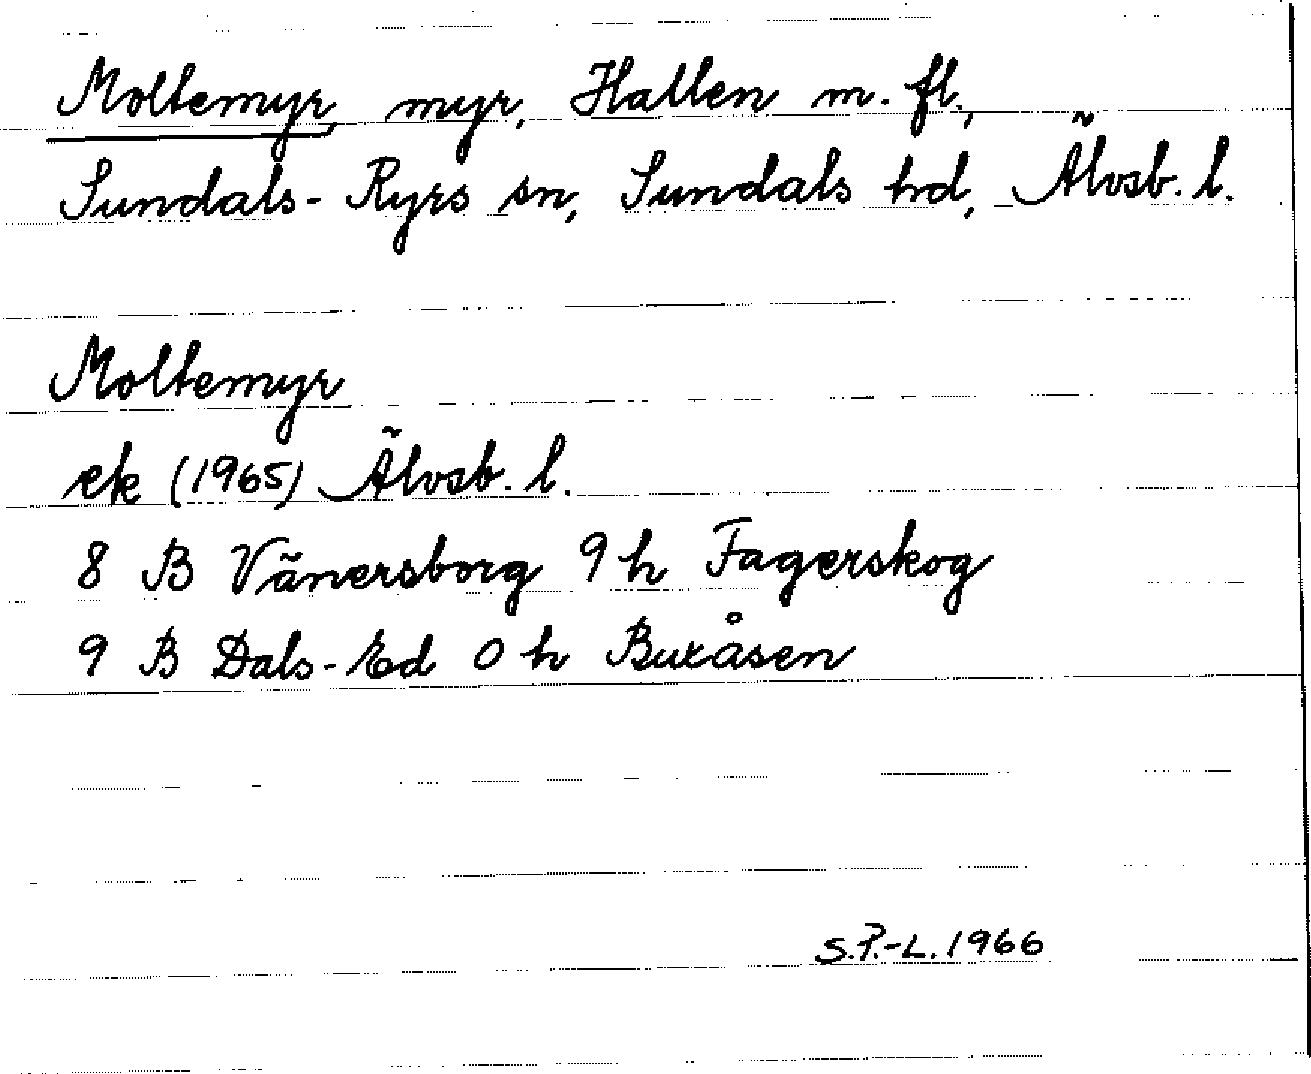 Moltemyr, myr, Hallen m. fl.,
Sundals-Ryrs sn, Sundals hd, Älvsb. l.
Moltemyr
ek (1965) Älvsb. l.
8 B Vänersborg 9 h Fagerskog
9 B Dals-Ed 0 h Buxåsen
S.P.-L. 1966